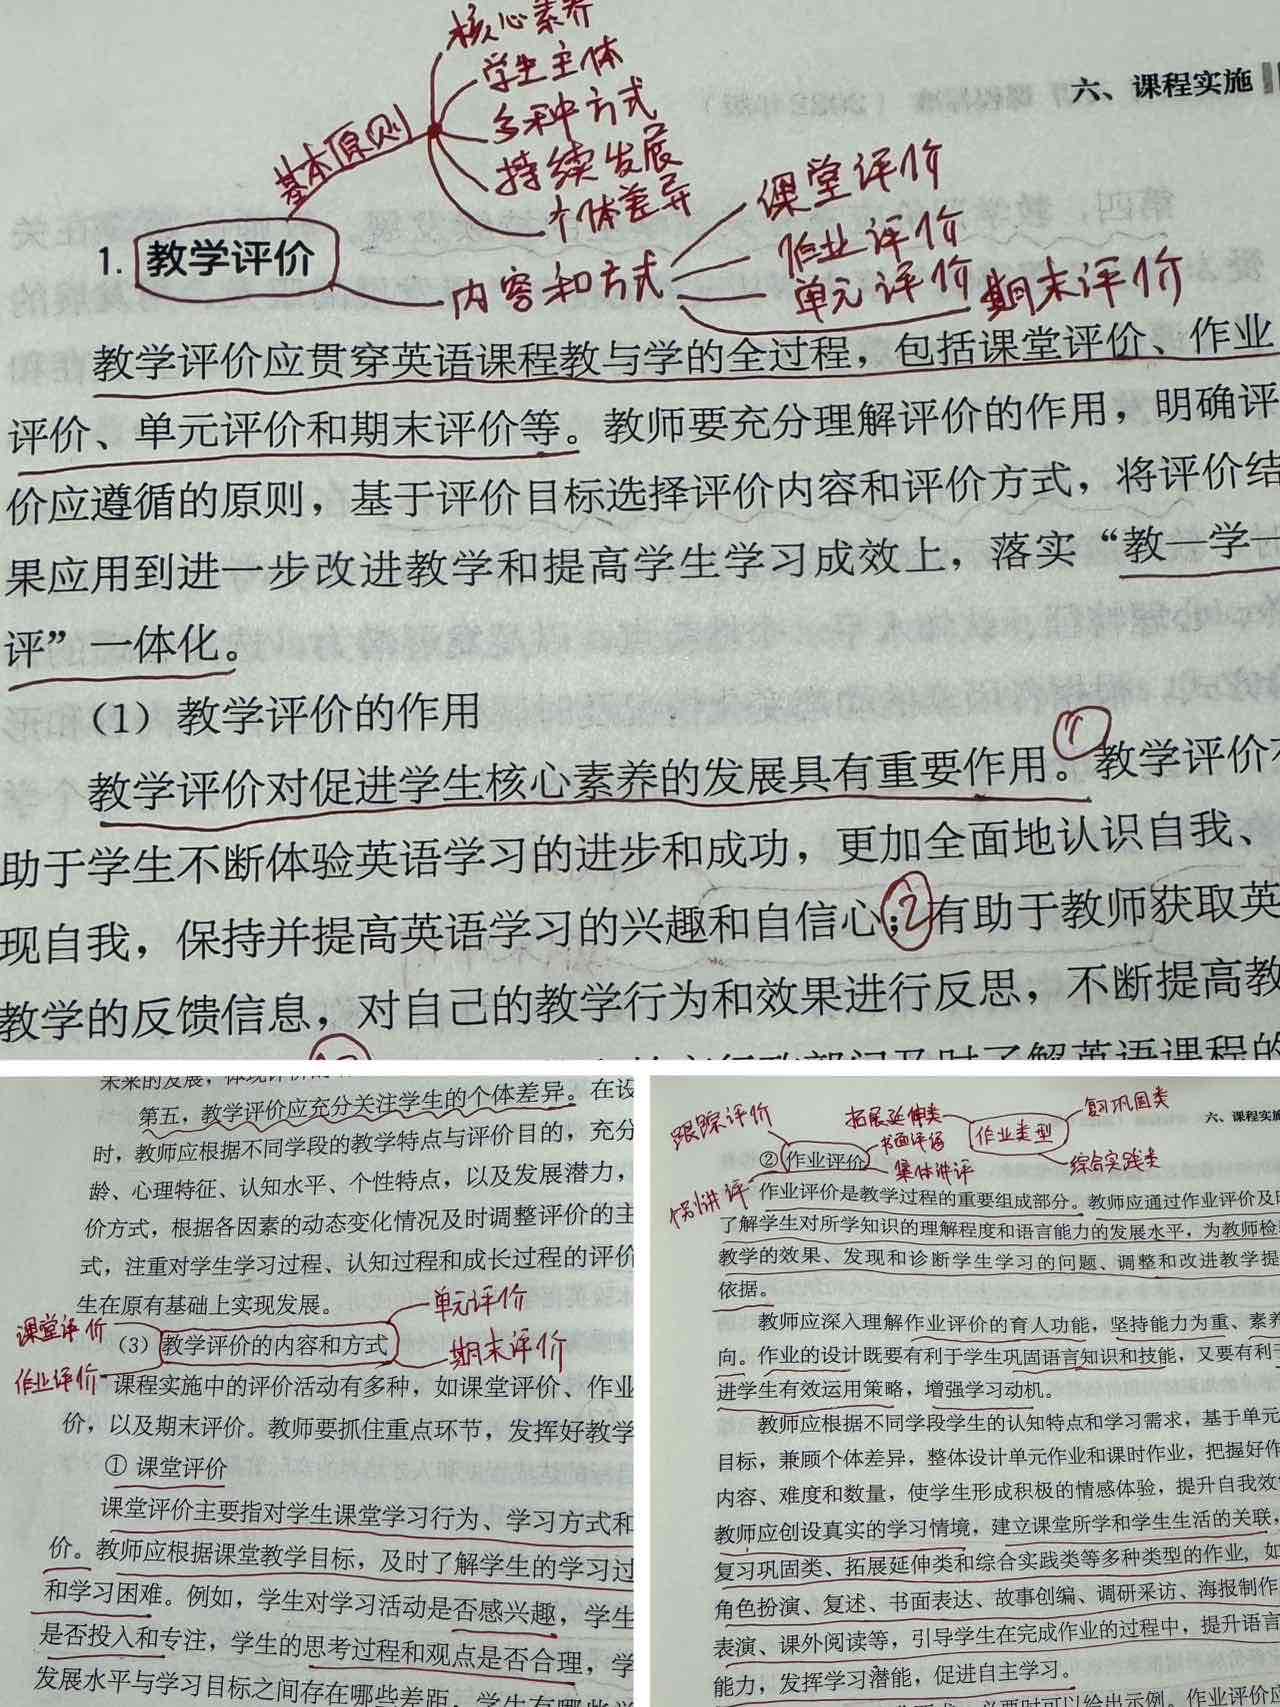 核心素养
学生主体
多种方式
持续发展
个体差异
基本原则
六、课程实施
课堂评价
作业评价
单元评价 期末评价
内容和方式
1. 教学评价
教学评价应贯穿英语课程教与学的全过程，包括课堂评价、作业
评价、单元评价和期末评价等。教师要充分理解评价的作用，明确评
价应遵循的原则，基于评价目标选择评价内容和评价方式，将评价结
果应用到进一步改进教学和提高学生学习成效上，落实“教—学—
评”一体化。
（1）教学评价的作用
教学评价对促进学生核心素养的发展具有重要作用。① 教学评价
助于学生不断体验英语学习的进步和成功，更加全面地认识自我、
现自我，保持并提高英语学习的兴趣和自信心；② 有助于教师获取英
教学的反馈信息，对自己的教学行为和效果进行反思，不断提高教
及时了解英语课程的
未来的发展，体现评价的
第五，教学评价应充分关注学生的个体差异。在设
时，教师应根据不同学段的教学特点与评价目的，充分
龄、心理特征、认知水平、个性特点，以及发展潜力，
价方式，根据各因素的动态变化情况及时调整评价的主
式，注重对学生学习过程、认知过程和成长过程的评价
生在原有基础上实现发展。
课堂评价
作业评价
（3）教学评价的内容和方式
单元评价
期末评价
课程实施中的评价活动有多种，如课堂评价、作业
价，以及期末评价。教师要抓住重点环节，发挥好教学
① 课堂评价
课堂评价主要指对学生课堂学习行为、学习方式和
价。教师应根据课堂教学目标，及时了解学生的学习过
和学习困难。例如，学生对学习活动是否感兴趣，学生
是否投入和专注，学生的思考过程和观点是否合理，学
发展水平与学习目标之间存在哪些差距，学生有哪些
跟踪评价
拓展延伸类
作业类型
复习巩固类
综合实践类
六、课程实施
书面评语
集体讲评
② 作业评价
讲评
作业评价是教学过程的重要组成部分。教师应通过作业评价及
了解学生对所学知识的理解程度和语言能力的发展水平，为教师检
教学的效果、发现和诊断学生学习的问题、调整和改进教学提
依据。
教师应深入理解作业评价的育人功能，坚持能力为重、素养
向。作业的设计既要有利于学生巩固语言知识和技能，又要有利于
进学生有效运用策略，增强学习动机。
教师应根据不同学段学生的认知特点和学习需求，基于单元
目标，兼顾个体差异，整体设计单元作业和课时作业，把握好作
内容、难度和数量，使学生形成积极的情感体验，提升自我效
教师应创设真实的学习情境，建立课堂所学和学生生活的关联，
复习巩固类、拓展延伸类和综合实践类等多种类型的作业，如
角色扮演、复述、书面表达、故事创编、调研采访、海报制作
表演、课外阅读等，引导学生在完成作业的过程中，提升语言
能力，发挥学习潜能，促进自主学习。
必要时可以给出示例。作业评价应